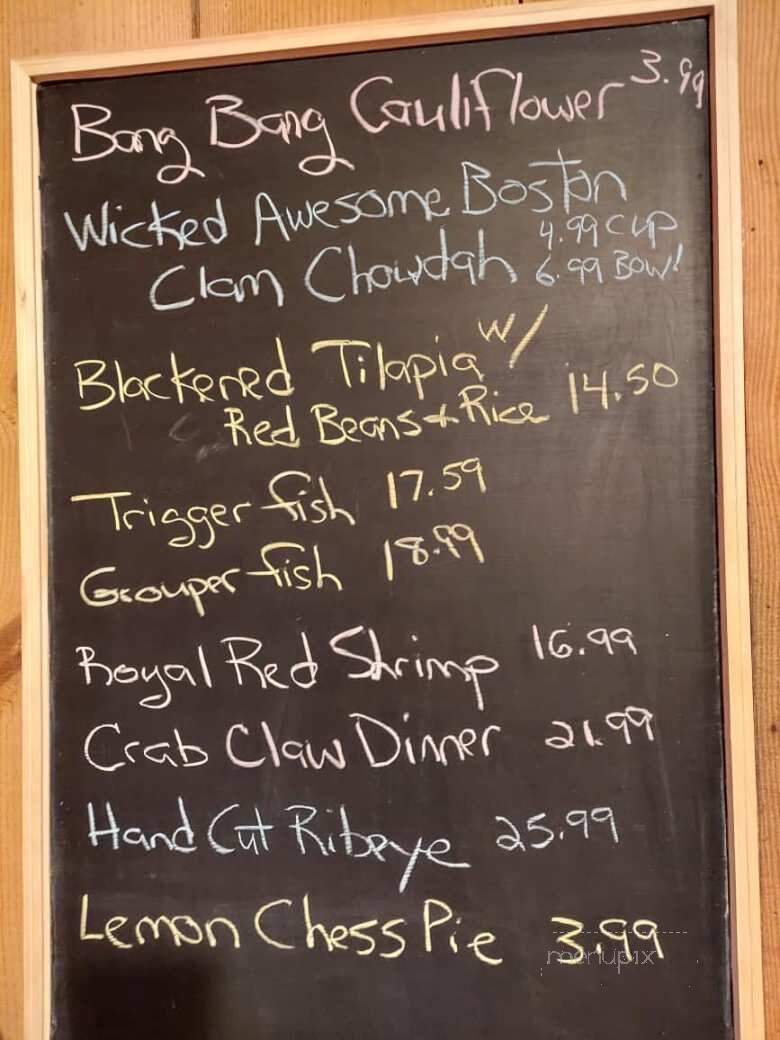 Bang Bang Cauliflower 3.99
Wicked Awesome Boston
Clam Chowdah 4.99 cup
6.99 Bowl
Blackened Tilapia w/
Red Beans & Rice 14.50
Trigger fish 17.59
Grouper fish 18.99
Royal Red Shrimp 16.99
Crab Claw Dinner 21.99
Hand Cut Ribeye 25.99
Lemon Chess Pie 3.99
menupix